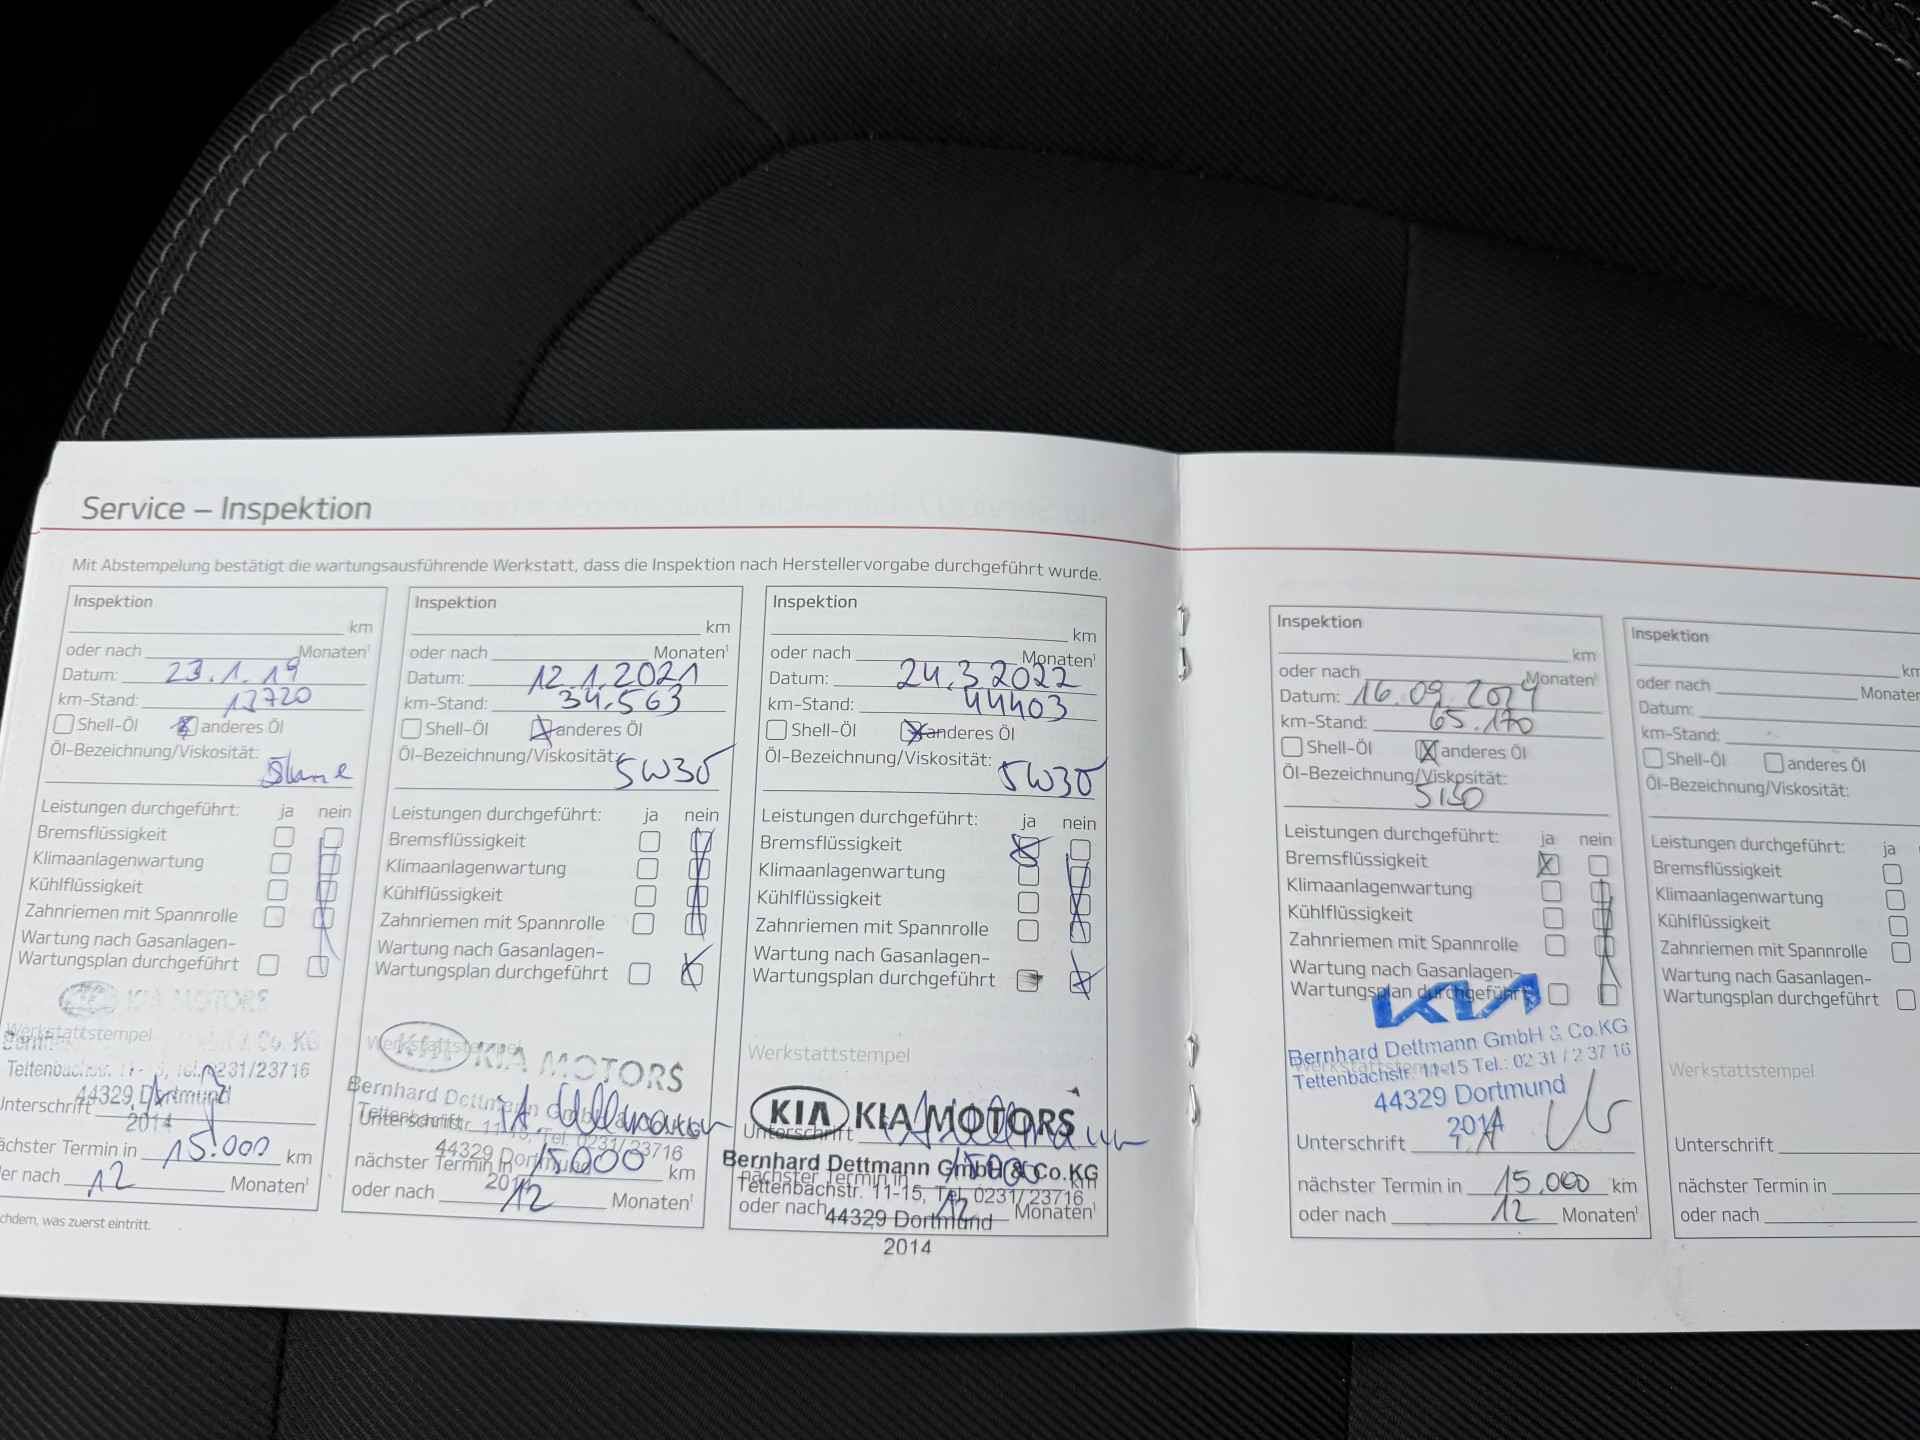 Service – Inspektion
Mit Abstempelung bestätigt die wartungsausführende Werkstatt, dass die Inspektion nach Herstellervorgabe durchgeführt wurde.
Inspektion
km
oder nach Monaten¹
Datum: 23.1.19
km-Stand: 13720
Shell-Öl anderes Öl
Öl-Bezeichnung/Viskosität:
Leistungen durchgeführt: ja nein
Bremsflüssigkeit
Klimaanlagenwartung
Kühlflüssigkeit
Zahnriemen mit Spannrolle
Wartung nach Gasanlagen-
Wartungsplan durchgeführt
KIA MOTORS
Werkstattstempel
& Co. KG
Tettenbachstr. 11-15, Tel. 0231/23716
44329 Dortmund
Unterschrift
2014
nächster Termin in 15.000 km
oder nach 12 Monaten¹
was zuerst eintritt.
Inspektion
km
oder nach Monaten¹
Datum: 12.1.2021
km-Stand: 34.563
Shell-Öl anderes Öl
Öl-Bezeichnung/Viskosität:
5W30
Leistungen durchgeführt: ja nein
Bremsflüssigkeit
Klimaanlagenwartung
Kühlflüssigkeit
Zahnriemen mit Spannrolle
Wartung nach Gasanlagen-
Wartungsplan durchgeführt
Werkstattstempel
KIA KIA MOTORS
Bernhard Dettmann GmbH & Co.KG
Unterschrift
Tettenbachstr. 11-15, Tel. 0231/23716
44329 Dortmund
nächster Termin in 15.000 km
2014
oder nach 12 Monaten¹
Inspektion
km
oder nach Monaten¹
Datum: 24.3.2022
km-Stand: 44403
Shell-Öl anderes Öl
Öl-Bezeichnung/Viskosität:
5W30
Leistungen durchgeführt: ja nein
Bremsflüssigkeit
Klimaanlagenwartung
Kühlflüssigkeit
Zahnriemen mit Spannrolle
Wartung nach Gasanlagen-
Wartungsplan durchgeführt
Werkstattstempel
KIA KIA MOTORS
Unterschrift
Bernhard Dettmann GmbH & Co.KG
nächster Termin in 15.000 km
Tettenbachstr. 11-15, Tel. 0231/23716
oder nach 12 Monaten¹
44329 Dortmund
2014
Inspektion
km
oder nach Monaten¹
Datum: 16.09.2024
km-Stand: 65.170
Shell-Öl anderes Öl
Öl-Bezeichnung/Viskosität:
Leistungen durchgeführt: ja nein
Bremsflüssigkeit
Klimaanlagenwartung
Kühlflüssigkeit
Zahnriemen mit Spannrolle
Wartung nach Gasanlagen-
Wartungsplan durchgeführt
KIA
Bernhard Dettmann GmbH & Co.KG
Werkstattstempel
Tettenbachstr. 11-15 Tel.: 02 31 / 2 37 16
44329 Dortmund
2014
Unterschrift
nächster Termin in 15.000 km
oder nach 12 Monaten¹
Inspektion
km
oder nach Monaten
Datum:
km-Stand:
Shell-Öl anderes Öl
Öl-Bezeichnung/Viskosität:
Leistungen durchgeführt: ja
Bremsflüssigkeit
Klimaanlagenwartung
Kühlflüssigkeit
Zahnriemen mit Spannrolle
Wartung nach Gasanlagen-
Wartungsplan durchgeführt
Werkstattstempel
Unterschrift
nächster Termin in
oder nach